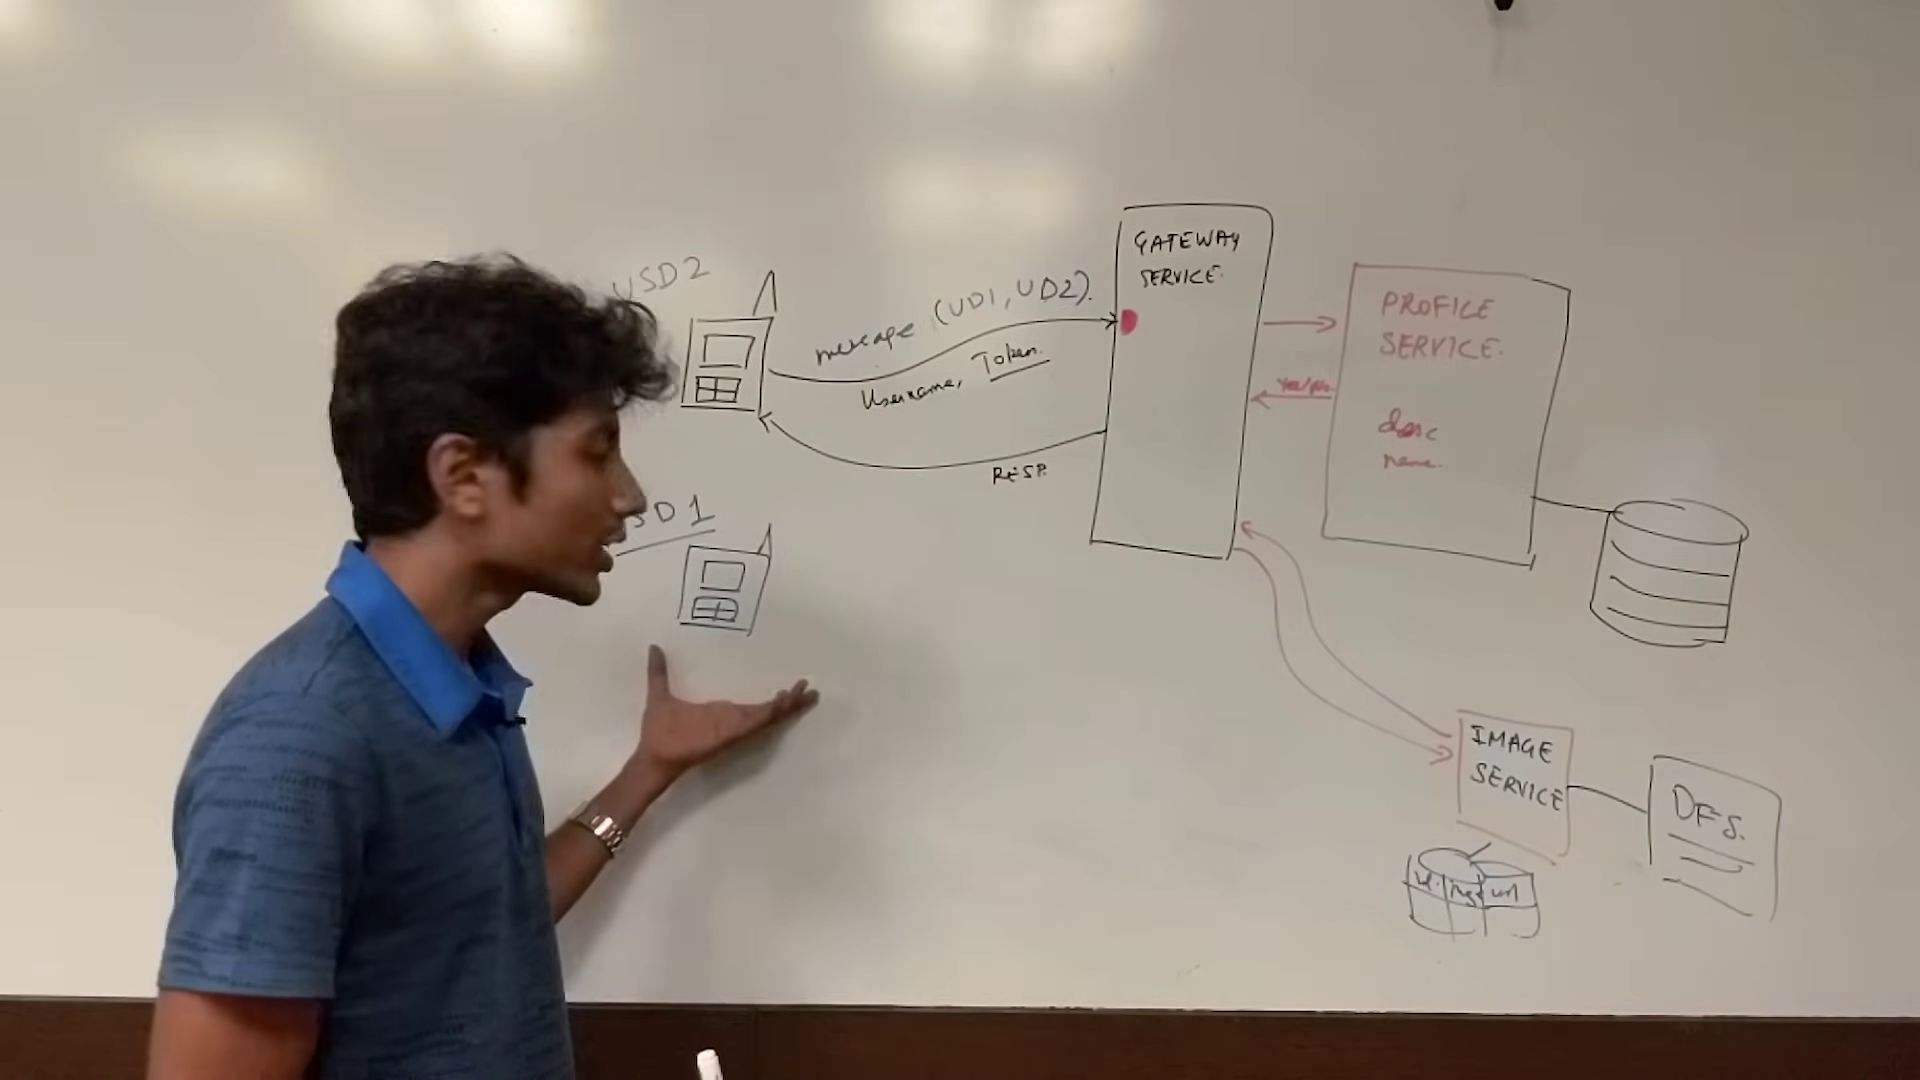 USD2
message (UD1, UD2).
Username, Token.
RESP.
SD1
GATEWAY
SERVICE.
PROFICE
SERVICE.
Yes/No
desc
name.
IMAGE
SERVICE
DFS.
id. img url